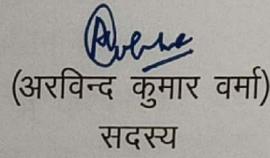 (अरविन्द कुमार वर्मा)
सदस्य